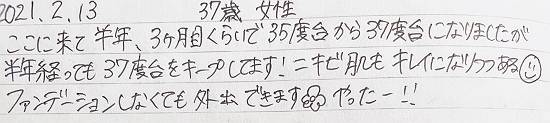 2021.2.13 37歳 女性
ここに来て半年、3ヶ月目くらいで35度台から37度台になりましたが
半年経っても37度台をキープしてます!ニキビ肌もキレイになりつつある☺
ファンデーションしなくても外出できます やったー!!